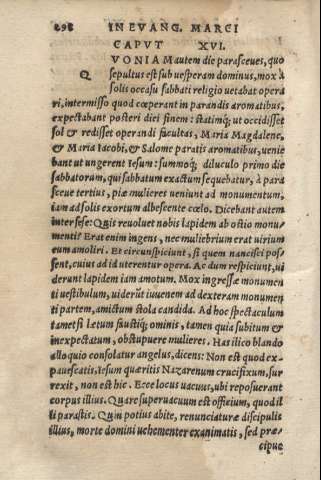 298 IN EVANG. MARCI
CAPVT XVI.
QVONIAM autem die parasceues, quo
sepultus est sub uesperam dominus, mox à
solis occasu sabbati religio uetabat opera
ri, intermisso quod cœperant in parandis aromatibus,
expectabant posteri diei finem: statimq́; ut occidisset
sol & redisset operandi facultas, Maria Magdalene,
& Maria Iacobi, & Salome paratis aromatibus, uenie
bant ut ungerent Iesum: summoq́; diluculo primo die
sabbatorum, qui sabbatum exactum sequebatur, à para
sceue tertius, piæ mulieres ueniunt ad monumentum,
iam ad solis exortum albescente cœlo. Dicebant autem
inter sese: Quis reuoluet nobis lapidem ab ostio monu
menti? Erat enim ingens, nec muliebrium erat uirium
eum amoliri. Et circunspiciunt, si quem nancisci pos
sent, cuius ad id uterentur opera. Ac dum respiciunt, ui
derunt lapidem iam amotum. Mox ingressæ monumen
ti uestibulum, uiderũt iuuenem ad dexteram monumen
ti partem, amictum stola candida. Ad hoc spectaculum
tametsi lætum faustiq́; ominis, tamen quia subitum &
inexpectatum, obstupuere mulieres. Has ilico blando
alloquio consolatur angelus, dicens: Non est quod ex-
pauescatis, Iesum quæritis Nazarenum crucifixum, sur
rexit, non est hic. Ecce locus uacuus, ubi reposuerant
corpus illius. Quare superuacuum est officium, quod il
li parastis. Quin potius abite, renunciaturæ discipulis
illius, morte domini uehementer exanimatis, sed præ-
cipue